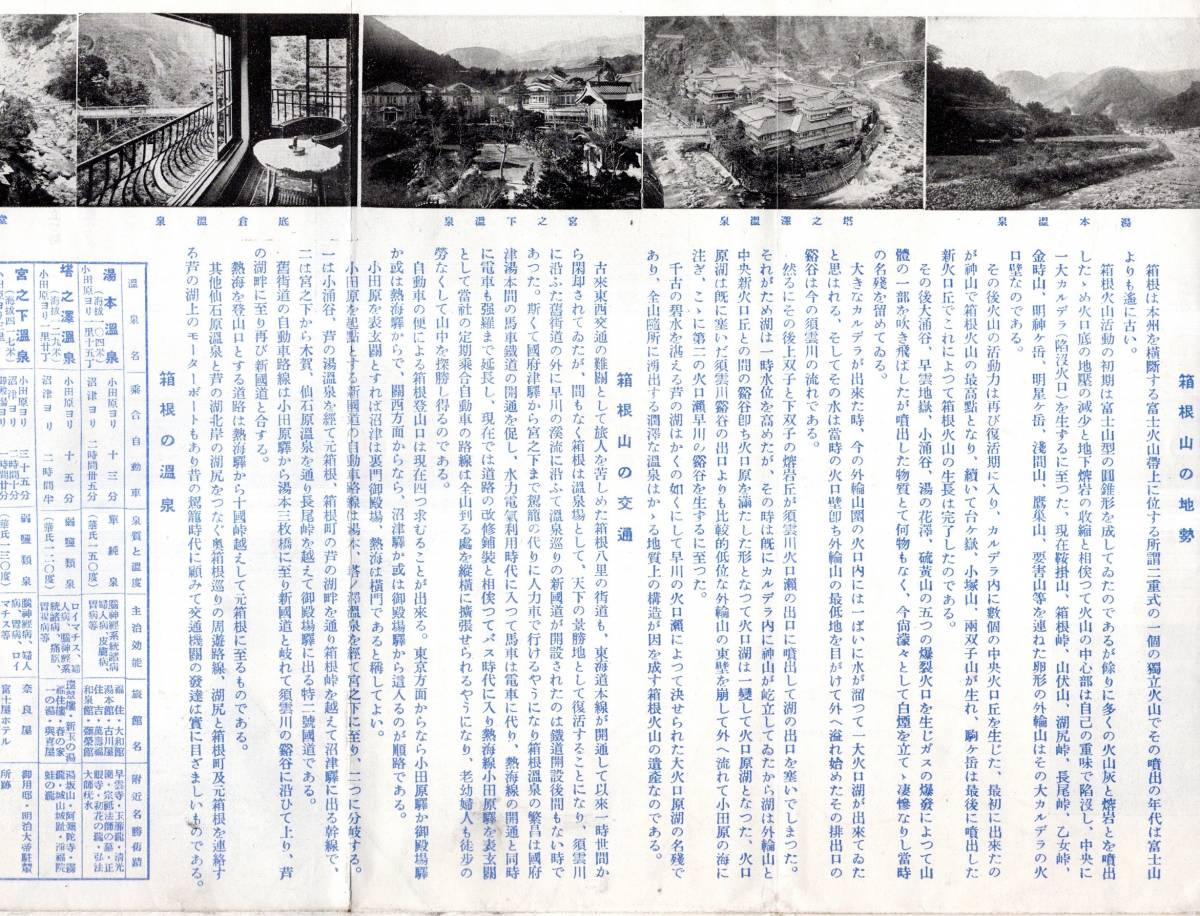 湯本温泉
塔之澤温泉
宮之下温泉
底倉温泉
堂
箱根山の地勢
箱根は本州を橫斷する富士火山帶上に位する所謂二重式の一個の獨立火山でその噴出の年代は富士山
よりも遙に古い。
箱根火山活動の初期は富士山型の圓錐形を成してゐたのであるが餘りに多くの火山灰と熔岩とを噴出
したゝめ火口底の地壓の減少と地下熔岩の收縮と相俟つて火山の中心部は自己の重味で陷沒し、中央に
一大カルデラ(陷沒火口)を生ずるに至つた、現在鞍掛山、箱根峠、山伏山、湖尻峠、長尾峠、乙女峠、
金時山、明神ヶ岳、明星ヶ岳、淺間山、鷹巢山、要害山等を連ねた卵形の外輪山はその大カルデラの火
口壁なのである。
その後火山の活動力は再び復活期に入り、カルデラ内に數個の中央火口丘を生じた、最初に出來たの
が神山でこれが箱根火山の最高點となり、續いて台ヶ嶽、小塚山、兩双子山が生れ、駒ヶ岳は最後に噴出した
新火口丘でこれによつて箱根火山の生長は完了したのである。
その後大涌谷、早雲地獄、小涌谷、湯の花澤、硫黃山の五つの爆裂火口を生じガスの爆發によつて山
體の一部を吹き飛ばしたが噴出した物質とて何物もなく、今尙濛々として白煙を立てゝ凄慘なりし當時
の名殘を留めてゐる。
大きなカルデラが出來た時、今の外輪山圍の火口内には一ぱいに水が溜つて一大火口湖が出來てゐた
と思はれる、そしてその水は當時の火口壁卽ち外輪山の最低地を目がけて外へ溢れ始めたその排出口の
谿谷は今の須雲川の流れである。
然るにその後上双子と下双子の熔岩丘が須雲川火口瀨の出口に噴出して湖の出口を塞いでしまつた。
それがため湖は一時水位を高めたが、その時は旣にカルデラ内に神山が屹立してゐたから湖は外輪山と
中央新火口丘との間の谿谷卽ち火口原を滿たした形となつて火口湖は一變して火口原湖となつた、火口
原湖は旣に塞いだ須雲川谿谷の出口よりも比較的低位な外輪山の東壁を崩して外へ流れて小田原の海に
注ぎ、こゝに第二の火口瀨早川の谿谷を生ずるに至つた。
千古の碧水を湛える芦の湖はかくの如くにして早川の火口瀨によつて決せられた大火口原湖の名殘で
あり、全山隨所に湧出する潤澤な温泉はかゝる地質上の構造が因を成す箱根火山の遺產なのである。
箱根山の交通
古來東西交通の難關として旅人を苦しめた箱根八里の街道も、東海道本線が開通して以來一時世間か
ら閑却されてゐたが、間もなく箱根は温泉場として、天下の景勝地として復活することになり、須雲川
に沿ふた舊街道の外に早川の溪流に沿ふて温泉巡りの新國道が開設されたのは鐵道開設後間もない時で
あつた。斯くて國府津驛から宮之下まで駕籠の代りに人力車で行けるやうになり箱根温泉の繁昌は國府
津湯本間の馬車鐵道の開通を促し、水力電氣利用時代に入つて馬車は電車に代り、熱海線の開通と同時
に電車も强羅まで延長し、現在では道路の改修鋪裝と相俟つてバス時代に入り熱海線小田原驛を表玄關
として當社の定期乘合自動車の路線は全山到る處を縱橫に擴張せられるやうになり、老幼婦人も徒步の
勞なくして山中を探勝し得るのである。
自動車の便による箱根登山口は現在四つ求むることが出來る。東京方面からなら小田原驛か御殿場驛
か或は熱海驛からで、關西方面からなら、沼津驛か或は御殿場驛から這入るのが順路である。
小田原を表玄關とすれば沼津は裏門御殿場、熱海は橫門であると稱してよい。
小田原を起點とする新國道の自動車路線は湯本、塔ノ澤温泉を經て宮之下に至り、二つに分岐する。
一は小涌谷、芦の湯温泉を經て元箱根、箱根町の芦の湖畔を通り箱根峠を越えて沼津驛に出る幹線で、
二は宮之下から木賀、仙石原温泉を通り長尾峠を越えて御殿場驛に出る特二號國道である。
舊街道の自動車路線は小田原驛から湯本三枚橋に至り新國道と岐れて須雲川の谿谷に沿ひて上り、芦
の湖畔に至り再び新國道と合する。
熱海を登山口とする道路は熱海驛から十國峠越えして元箱根に至るものである。
其他仙石原温泉と芦の湖北岸の湖尻をつなぐ奧箱根巡りの周遊路線、湖尻と箱根町及元箱根を連絡す
る芦の湖上のモーターボートもあつて舊駕籠時代に顧みて交通機關の發達は實に目ざましいものである。
箱根の温泉
温泉名
乘合自動車
泉質と溫度
主治効能
旅館名
附近名勝舊蹟
湯本温泉
小田原ヨリ 十三分
沼津ヨリ 二時間卅五分
單純泉
(華氏一五〇度)
福住・大和館
塔之澤温泉
小田原ヨリ 十五分
沼津ヨリ 二時間半
弱鹽類泉
(華氏一二〇度)
一の湯・與喜屋
宮之下温泉
弱鹽類泉
(華氏一三〇度)
奈良屋
富士屋ホテル